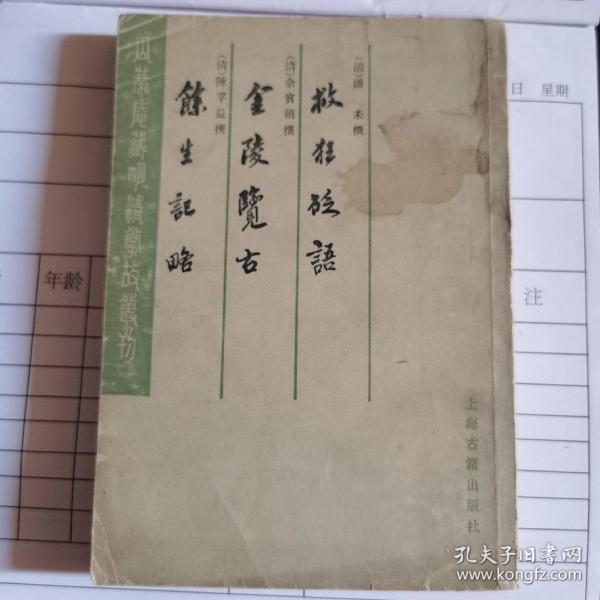 瓜蒂庵藏明清掌故叢刊
(清)潘 耒撰
救狂砭語
(清)余賓碩撰
金陵覽古
(清)陳孚益撰
餘生記略
上海古籍出版社
日 星期
年龄
注
孔夫子旧书网
www.kongfz.com